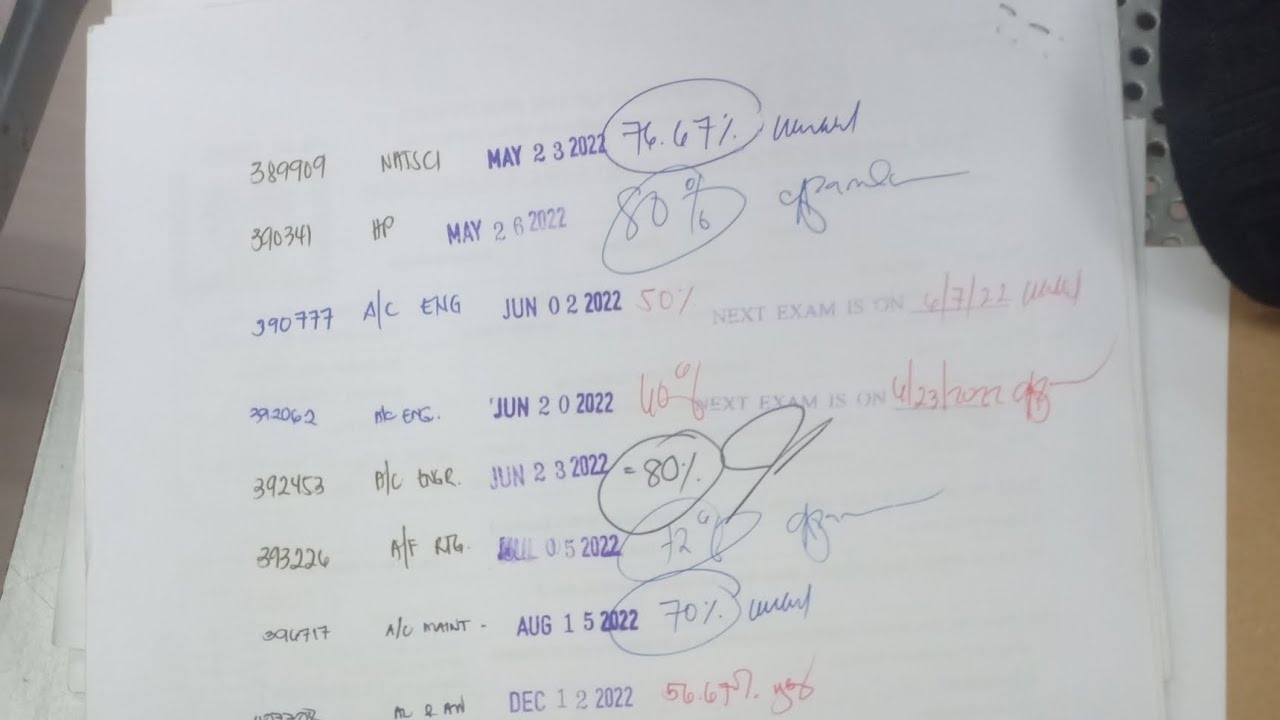 389909 NATSCI MAY 23 2022 76.67%
390341 HP MAY 26 2022 80%
390777 A/C ENG JUN 02 2022 50% NEXT EXAM IS ON 6/7/22
392062 A/C ENG. JUN 20 2022 60% NEXT EXAM IS ON 6/23/2022
392453 A/C ENGR. JUN 23 2022 = 80%
393226 A/F RTG. JUL 05 2022 72%
394717 A/C MAINT - AUG 15 2022 70%
DEC 12 2022 56.67%